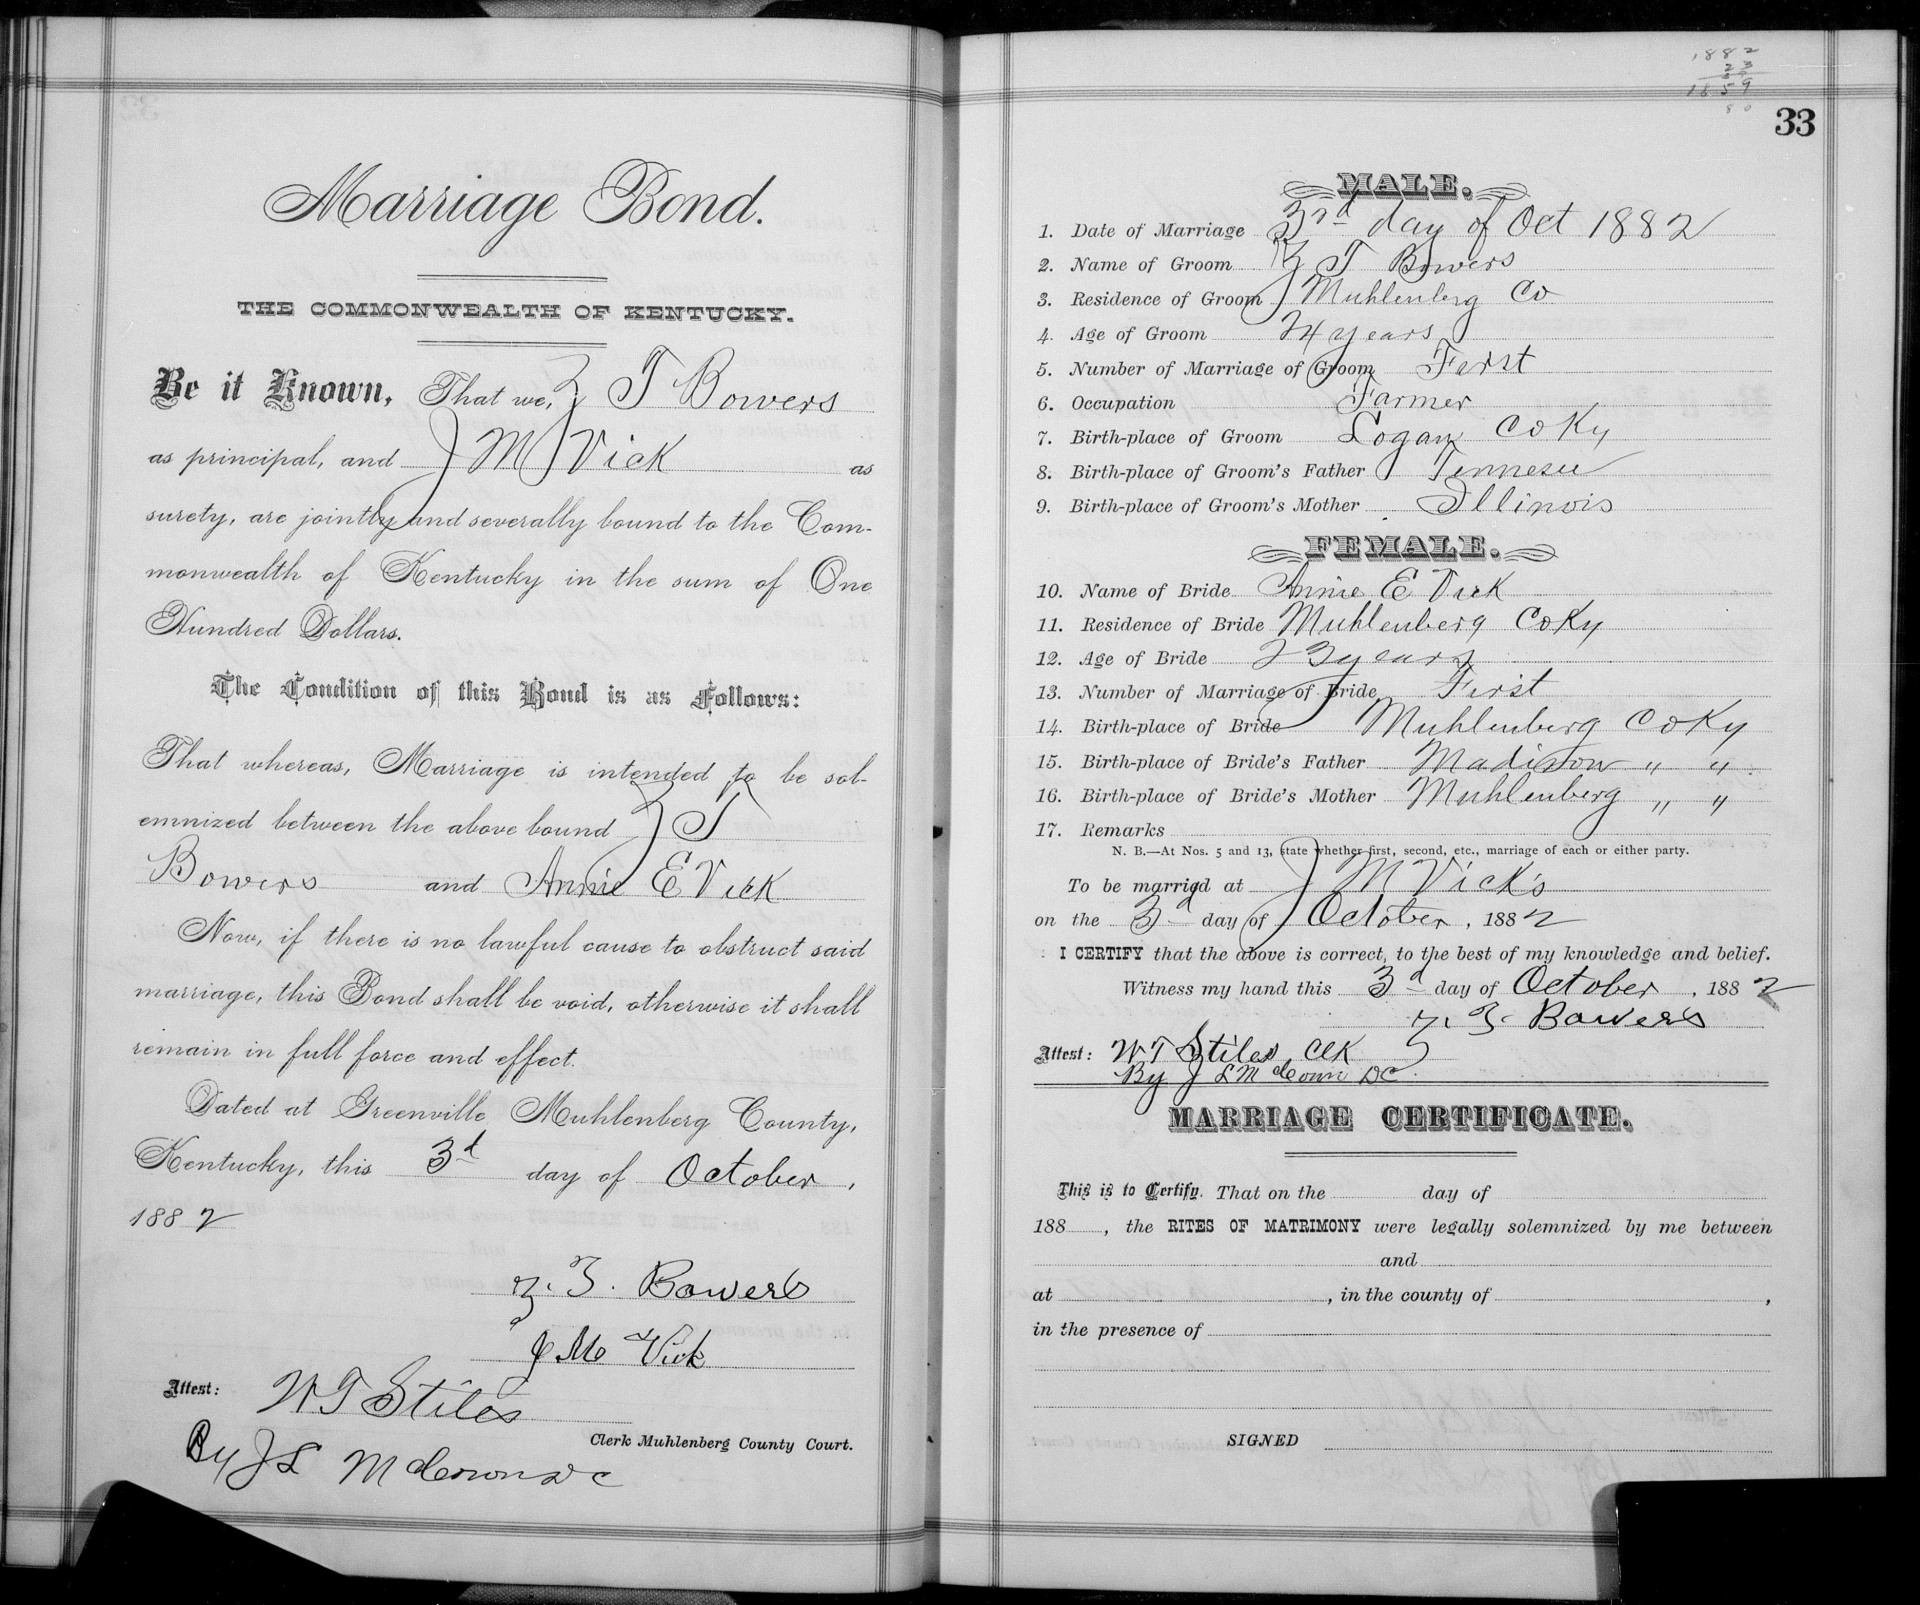 Marriage Bond.
THE COMMONWEALTH OF KENTUCKY.
Be it Known, That we, Z T Bowers
as principal, and J M Vick as
surety, are jointly and severally bound to the Com-
monwealth of Kentucky in the sum of One
Hundred Dollars.
The Condition of this Bond is as Follows:
That whereas, Marriage is intended to be sol-
emnized between the above bound Z T
Bowers and Annie E Vick
Now, if there is no lawful cause to obstruct said
marriage, this Bond shall be void, otherwise it shall
remain in full force and effect.
Dated at Greenville Muhlenberg County,
Kentucky, this 3d day of October,
1882
Z. T. Bowers
J M Vick
Attest: W T Stiles
Clerk Muhlenberg County Court.
By J L McCown DC
1882
23
1859
33
MALE.
1. Date of Marriage 3rd day of Oct 1882
2. Name of Groom Z T Bowers
3. Residence of Groom Muhlenberg Co
4. Age of Groom 24 years
5. Number of Marriage of Groom First
6. Occupation Farmer
7. Birth-place of Groom Logan Co Ky
8. Birth-place of Groom's Father Tennesee
9. Birth-place of Groom's Mother Illinois
FEMALE.
10. Name of Bride Annie E Vick
11. Residence of Bride Muhlenberg Co Ky
12. Age of Bride 23 years
13. Number of Marriage of Bride First
14. Birth-place of Bride Muhlenberg Co Ky
15. Birth-place of Bride's Father Madison " "
16. Birth-place of Bride's Mother Muhlenberg " "
17. Remarks
N. B.—At Nos. 5 and 13, state whether first, second, etc., marriage of each or either party.
To be married at J M Vick's
on the 3d day of October, 1882
I CERTIFY that the above is correct, to the best of my knowledge and belief.
Witness my hand this 3d day of October, 1882
Z. T. Bowers
Attest: W T Stiles Clk
By J L McCown DC
MARRIAGE CERTIFICATE.
This is to Certify, That on the day of
188 , the RITES OF MATRIMONY were legally solemnized by me between
and
at , in the county of ,
in the presence of
SIGNED